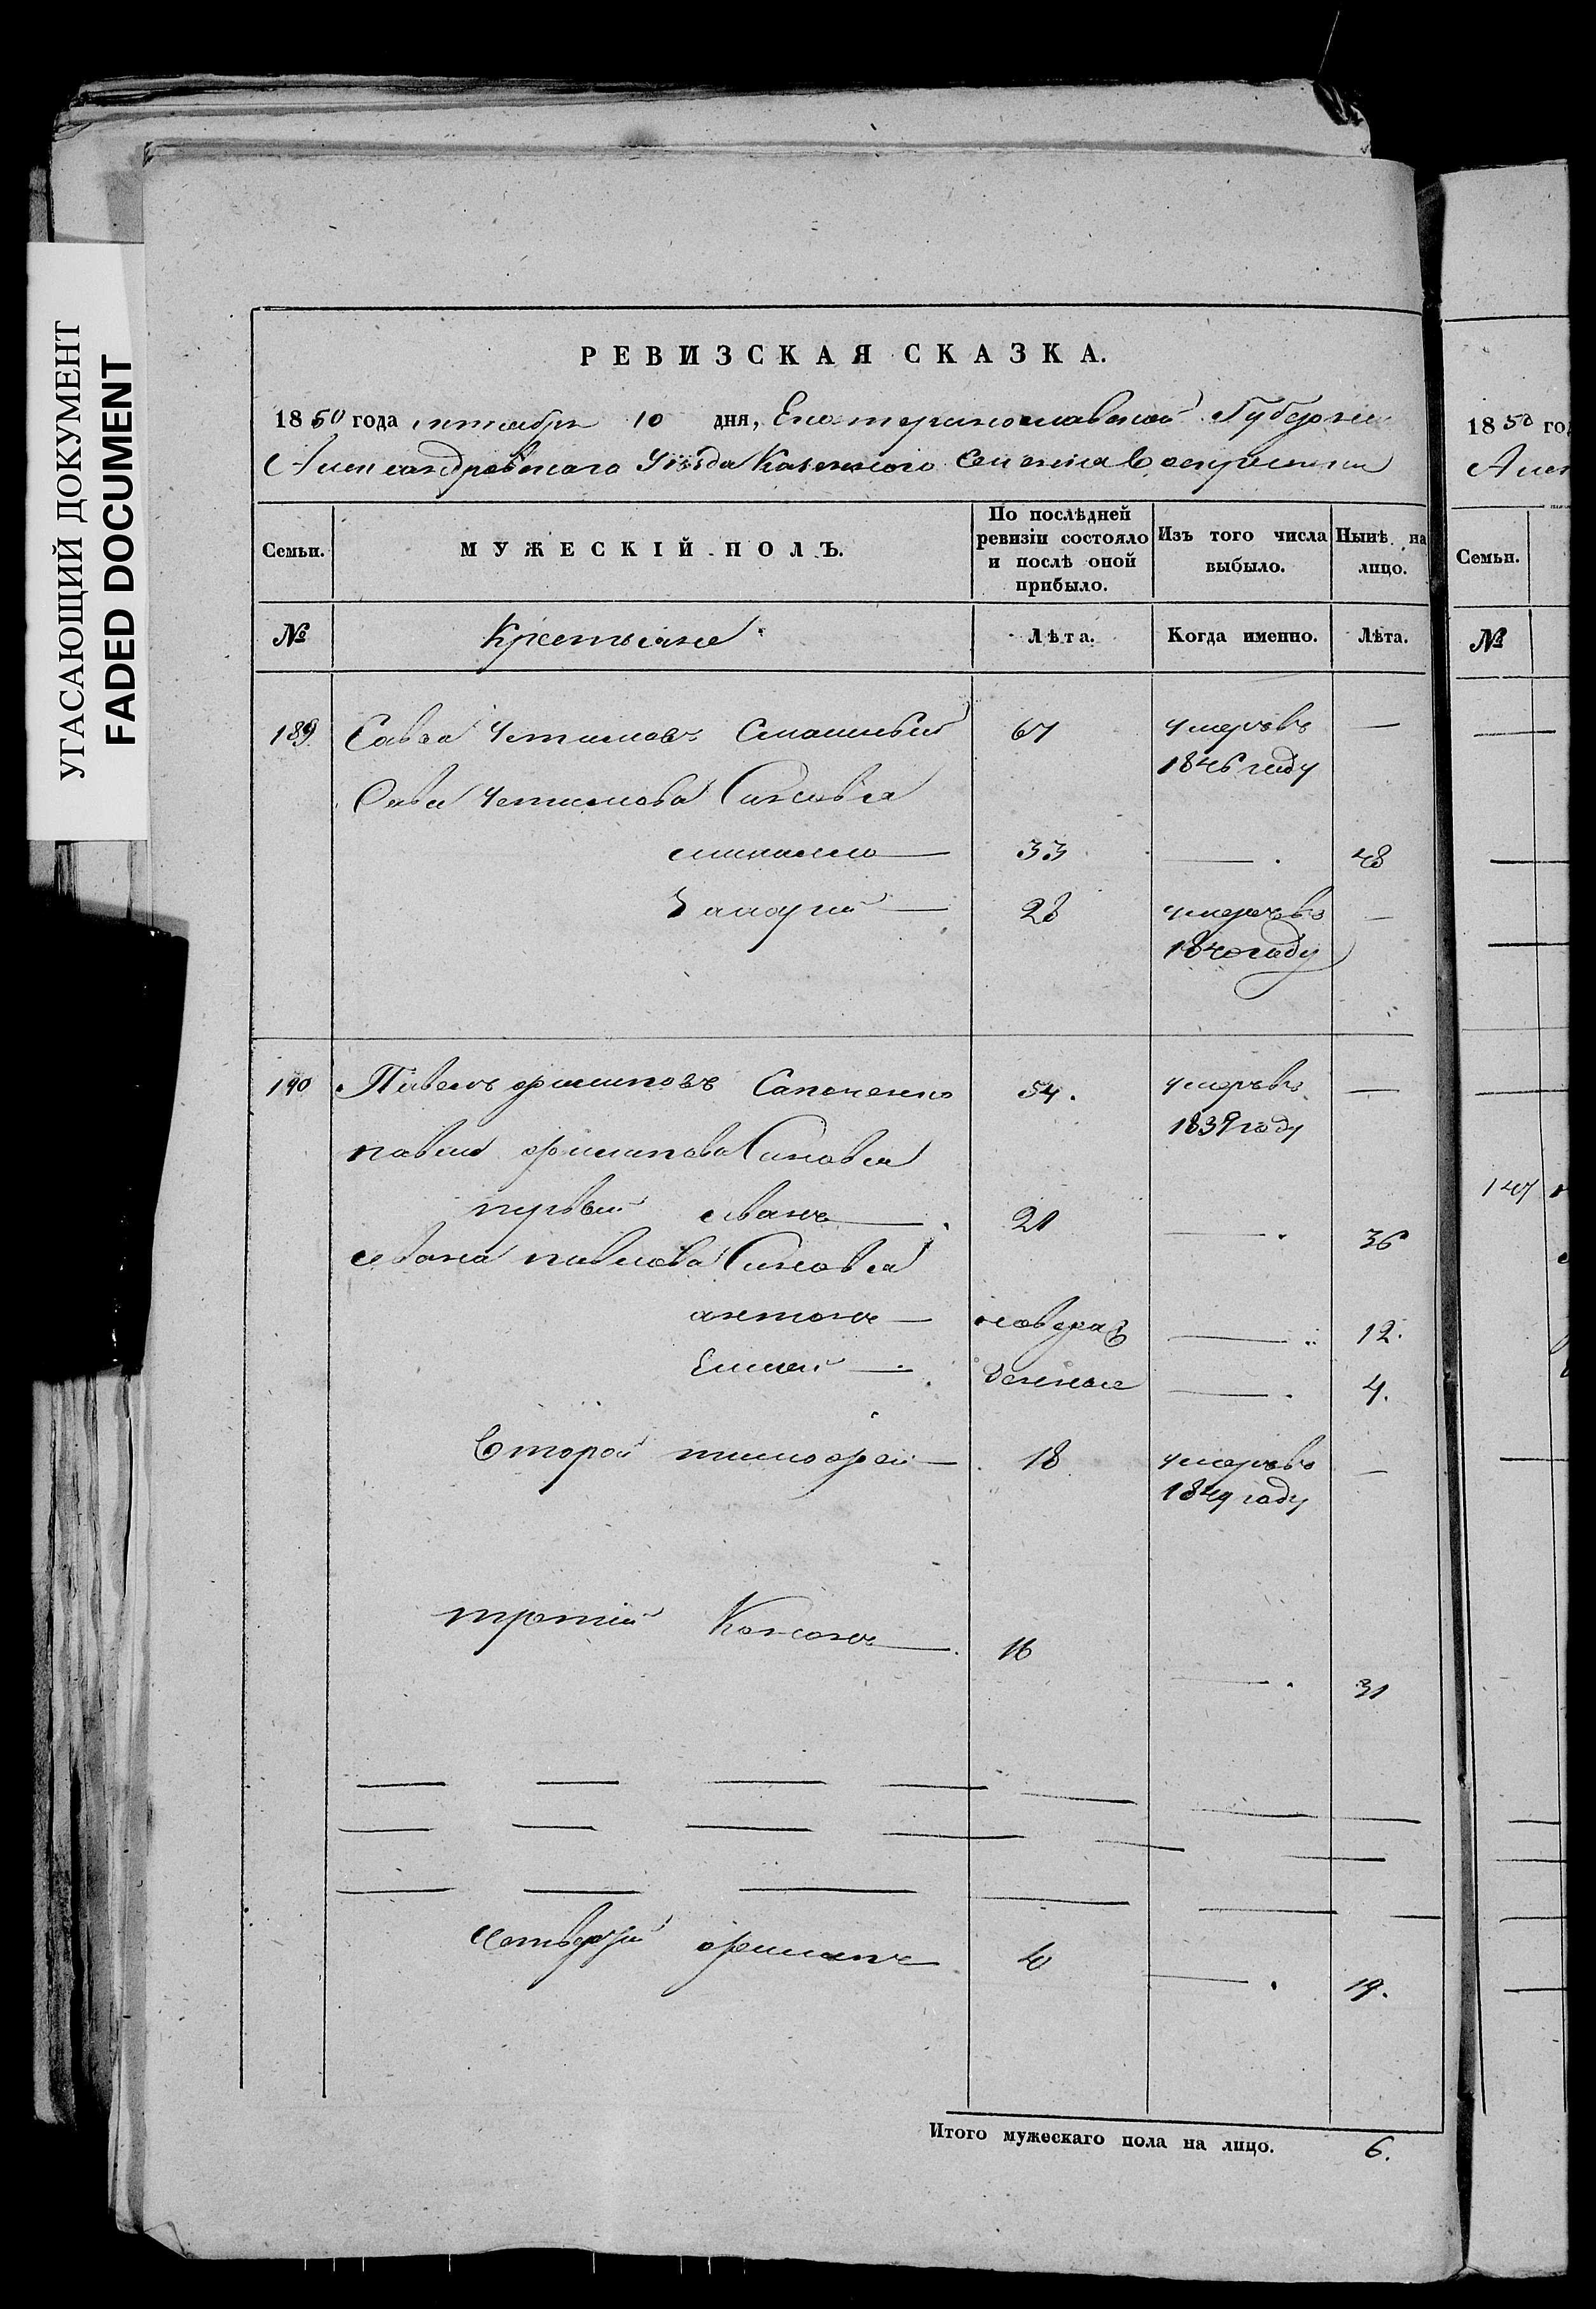 УГАСАЮЩИЙ ДОКУМЕНТ
FADED DOCUMENT
РЕВИЗСКАЯ СКАЗКА.
1850 года октября 10 дня, Екатеринославской Губернии
Александровскаго Уѣзда Казеннаго Селенія
Семьи. МУЖЕСКІЙ ПОЛЪ. По послѣдней ревизіи состояло и послѣ оной прибыло. Изъ того числа выбыло. Нынѣ на лицо.
№ Крестьяне Лѣта. Когда именно. Лѣта.
189. Савва Устимовъ 67 умеръ въ —
1846 году
Савы Устимова Сыновья
михайло — 33 — . 48
Захарій — 28 умеръ въ —
1840 году
190 Павелъ филиповъ 54. умеръ въ —
1839 году
павла филипова Сыновья
первый иванъ — 21 — . 36
ивана павлова Сыновья
антонъ — новораж — 12.
— денные — . 4.
Второй тимофей — 18 умеръ въ —
1849 году
третій Кононъ — 16 — . 31
четвертый филипъ 4 — . 19.
Итого мужескаго пола на лицо. 6.
1850 го
Алек
Семьи.
№
147